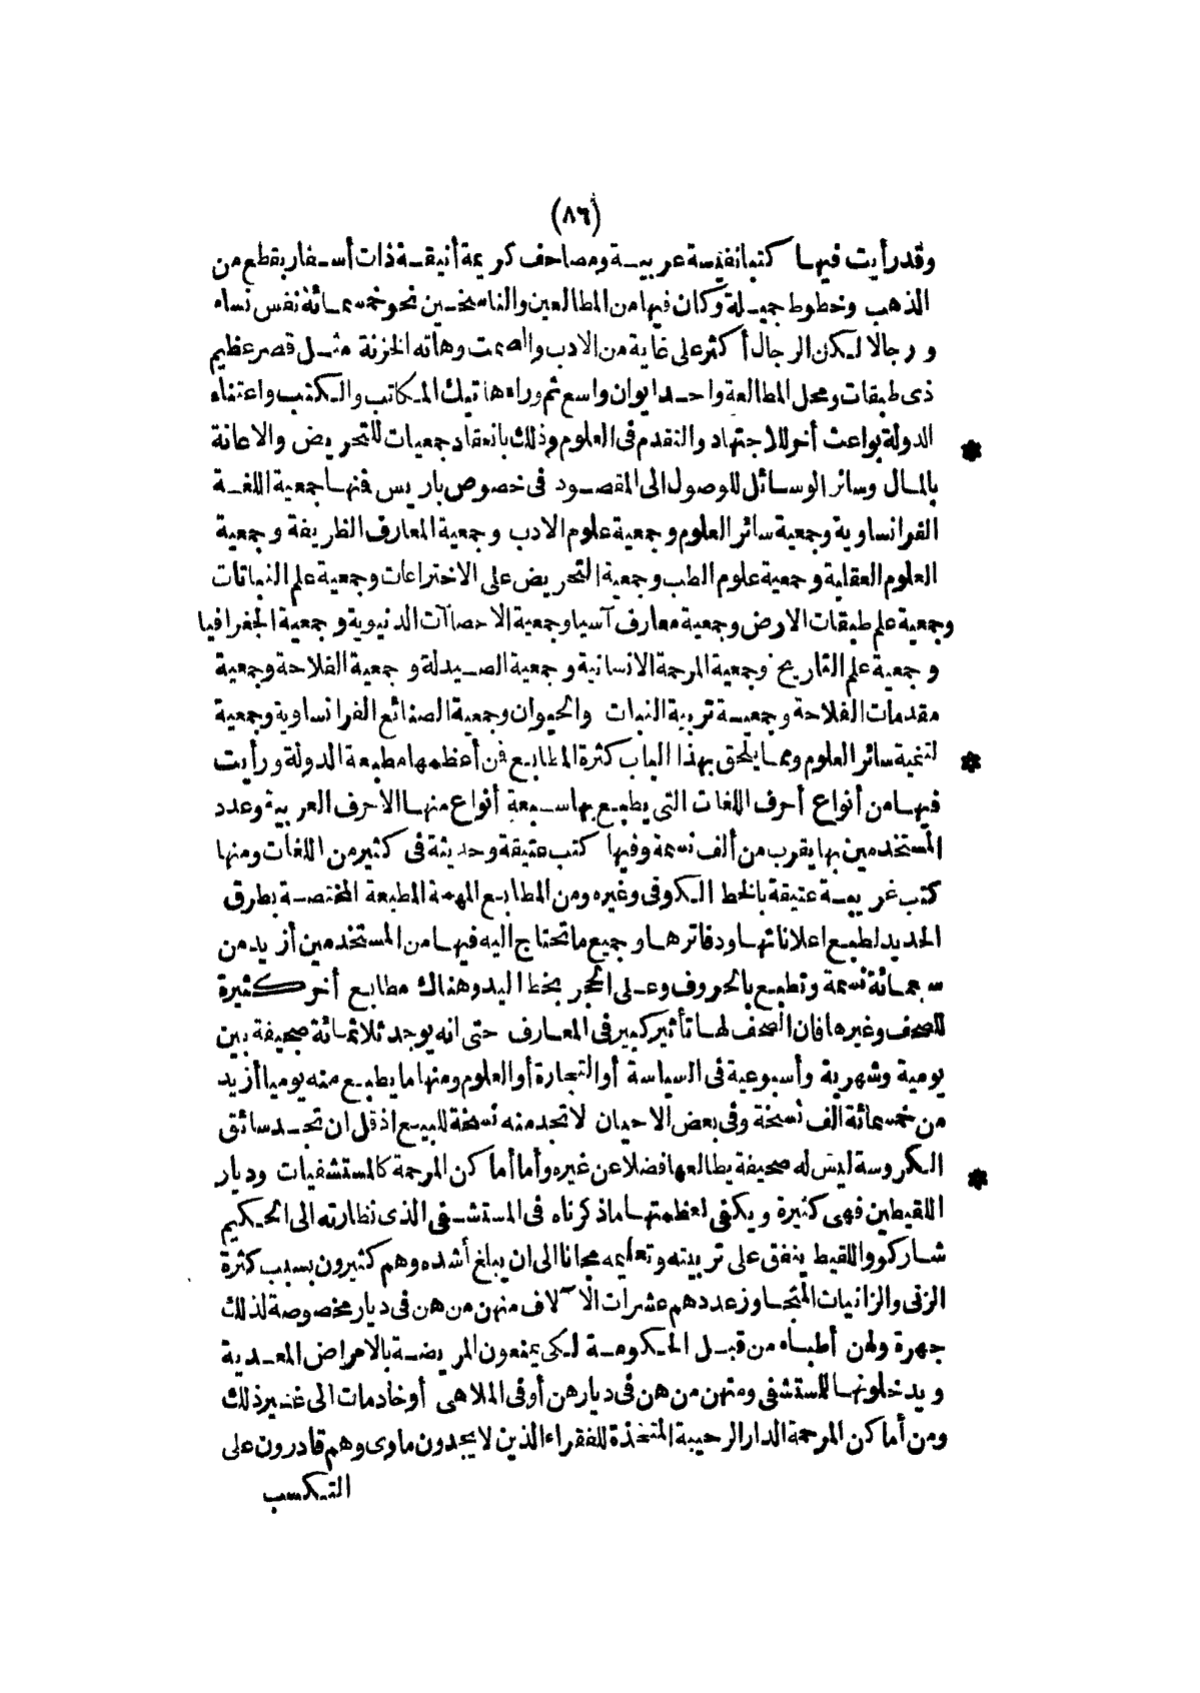 (٨٦)
وقد رأيت فيها كتبا نفيسة عربية ومصاحف كريمة أنيقة ذات أسفار بقطع من
الذهب وخطوط جميلة وكان فيها من المطالعين والناسخين نحو خمسمائة نفس نساء
ورجالا لكن الرجال أكثر على غاية من الادب والصمت وهاته الخزنة مثل قصر عظيم
ذى طبقات ومحل المطالعة واحد ايوان واسع ثم وراءها تيك المكاتب والكتب واعتناء
الدولة بواعث أخر للاجتهاد والتقدم فى العلوم وذلك بانعقاد جمعيات للتحريض والاعانة *
بالمال وسائر الوسائل للوصول الى المقصود فى خصوص باريس فنها جمعية اللغة
الفرانساوية وجمعية سائر العلوم وجمعية علوم الادب وجمعية المعارف الظريفة وجمعية
العلوم العقلية وجمعية علوم الطب وجمعية التحريض على الاختراعات وجمعية علم النباتات
وجمعية علم طبقات الارض وجمعية معارف آسيا وجمعية الاحصاآت الدنيوية وجمعية الجغرافيا
وجمعية علم التاريخ وجمعية المرحمة الانسانية وجمعية الصيدلة وجمعية الفلاحة وجمعية
مقدمات الفلاحة وجمعية تربية النبات والحيوان وجمعية الصنائع الفرانساوية وجمعية
لتنمية سائر العلوم ومما يلحق بهذا الباب كثرة المطابع فن أعظمها مطبعة الدولة ورأيت *
فيها من أنواع أحرف اللغات التى يطبع بها سبعة أنواع منها الاحرف العربية وعدد
المستخدمين بها يقرب من ألف نسمة وفيها كتب عتيقة وحديثة فى كثير من اللغات ومنها
كتب عربية عتيقة بالخط الكوفى وغيره ومن المطابع المهمة المطبعة المختصة بطرق
الحديد لطبع اعلاناتها ودفاترها وجميع ما تحتاج اليه فيها من المستخدمين أزيد من
سبعمائة نسمة وتطبع بالحروف وعلى الحجر بخط اليد وهناك مطابع أخر كثيرة
للصحف وغيرها فان الصحف لها تأثير كبير فى المعارف حتى انه يوجد ثلاثمائة صحيفة بين
يومية وشهرية وأسبوعية فى السياسة أو التجارة أو العلوم ومنها ما يطبع منه يوميا أزيد
من خمسمائة ألف نسخة وفى بعض الاحيان لا تجد منه نسخة للبيع اذ قل ان تجد سائق
الكروسة ليس له صحيفة يطالعها فضلا عن غيره وأما أماكن المرحمة كالمستشفيات وديار *
اللقيطين فهى كثيرة ويكفى لعظمتها ماذكرناه فى المستشفى الذى نظارته الى الحكيم
شاركو واللقيط ينفق على تربيته وتعليمه مجانا الى ان يبلغ أشده وهم كثيرون بسبب كثرة
الزنى والزانيات المتجاوز عددهم عشرات الآلاف منهن من هن فى ديار مخصوصة لذلك
جهرة ولهن أطباء من قبل الحكومة لكى يمنعون المريضة بالامراض المعدية
ويدخلونها للمستشفى ومنهن من هن فى ديارهن أو فى الملاهى أو خادمات الى غير ذلك
ومن أماكن المرحمة الدار الرحيبة المتخذة للفقراء الذين لا يجدون ماوى وهم قادرون على
التكسب